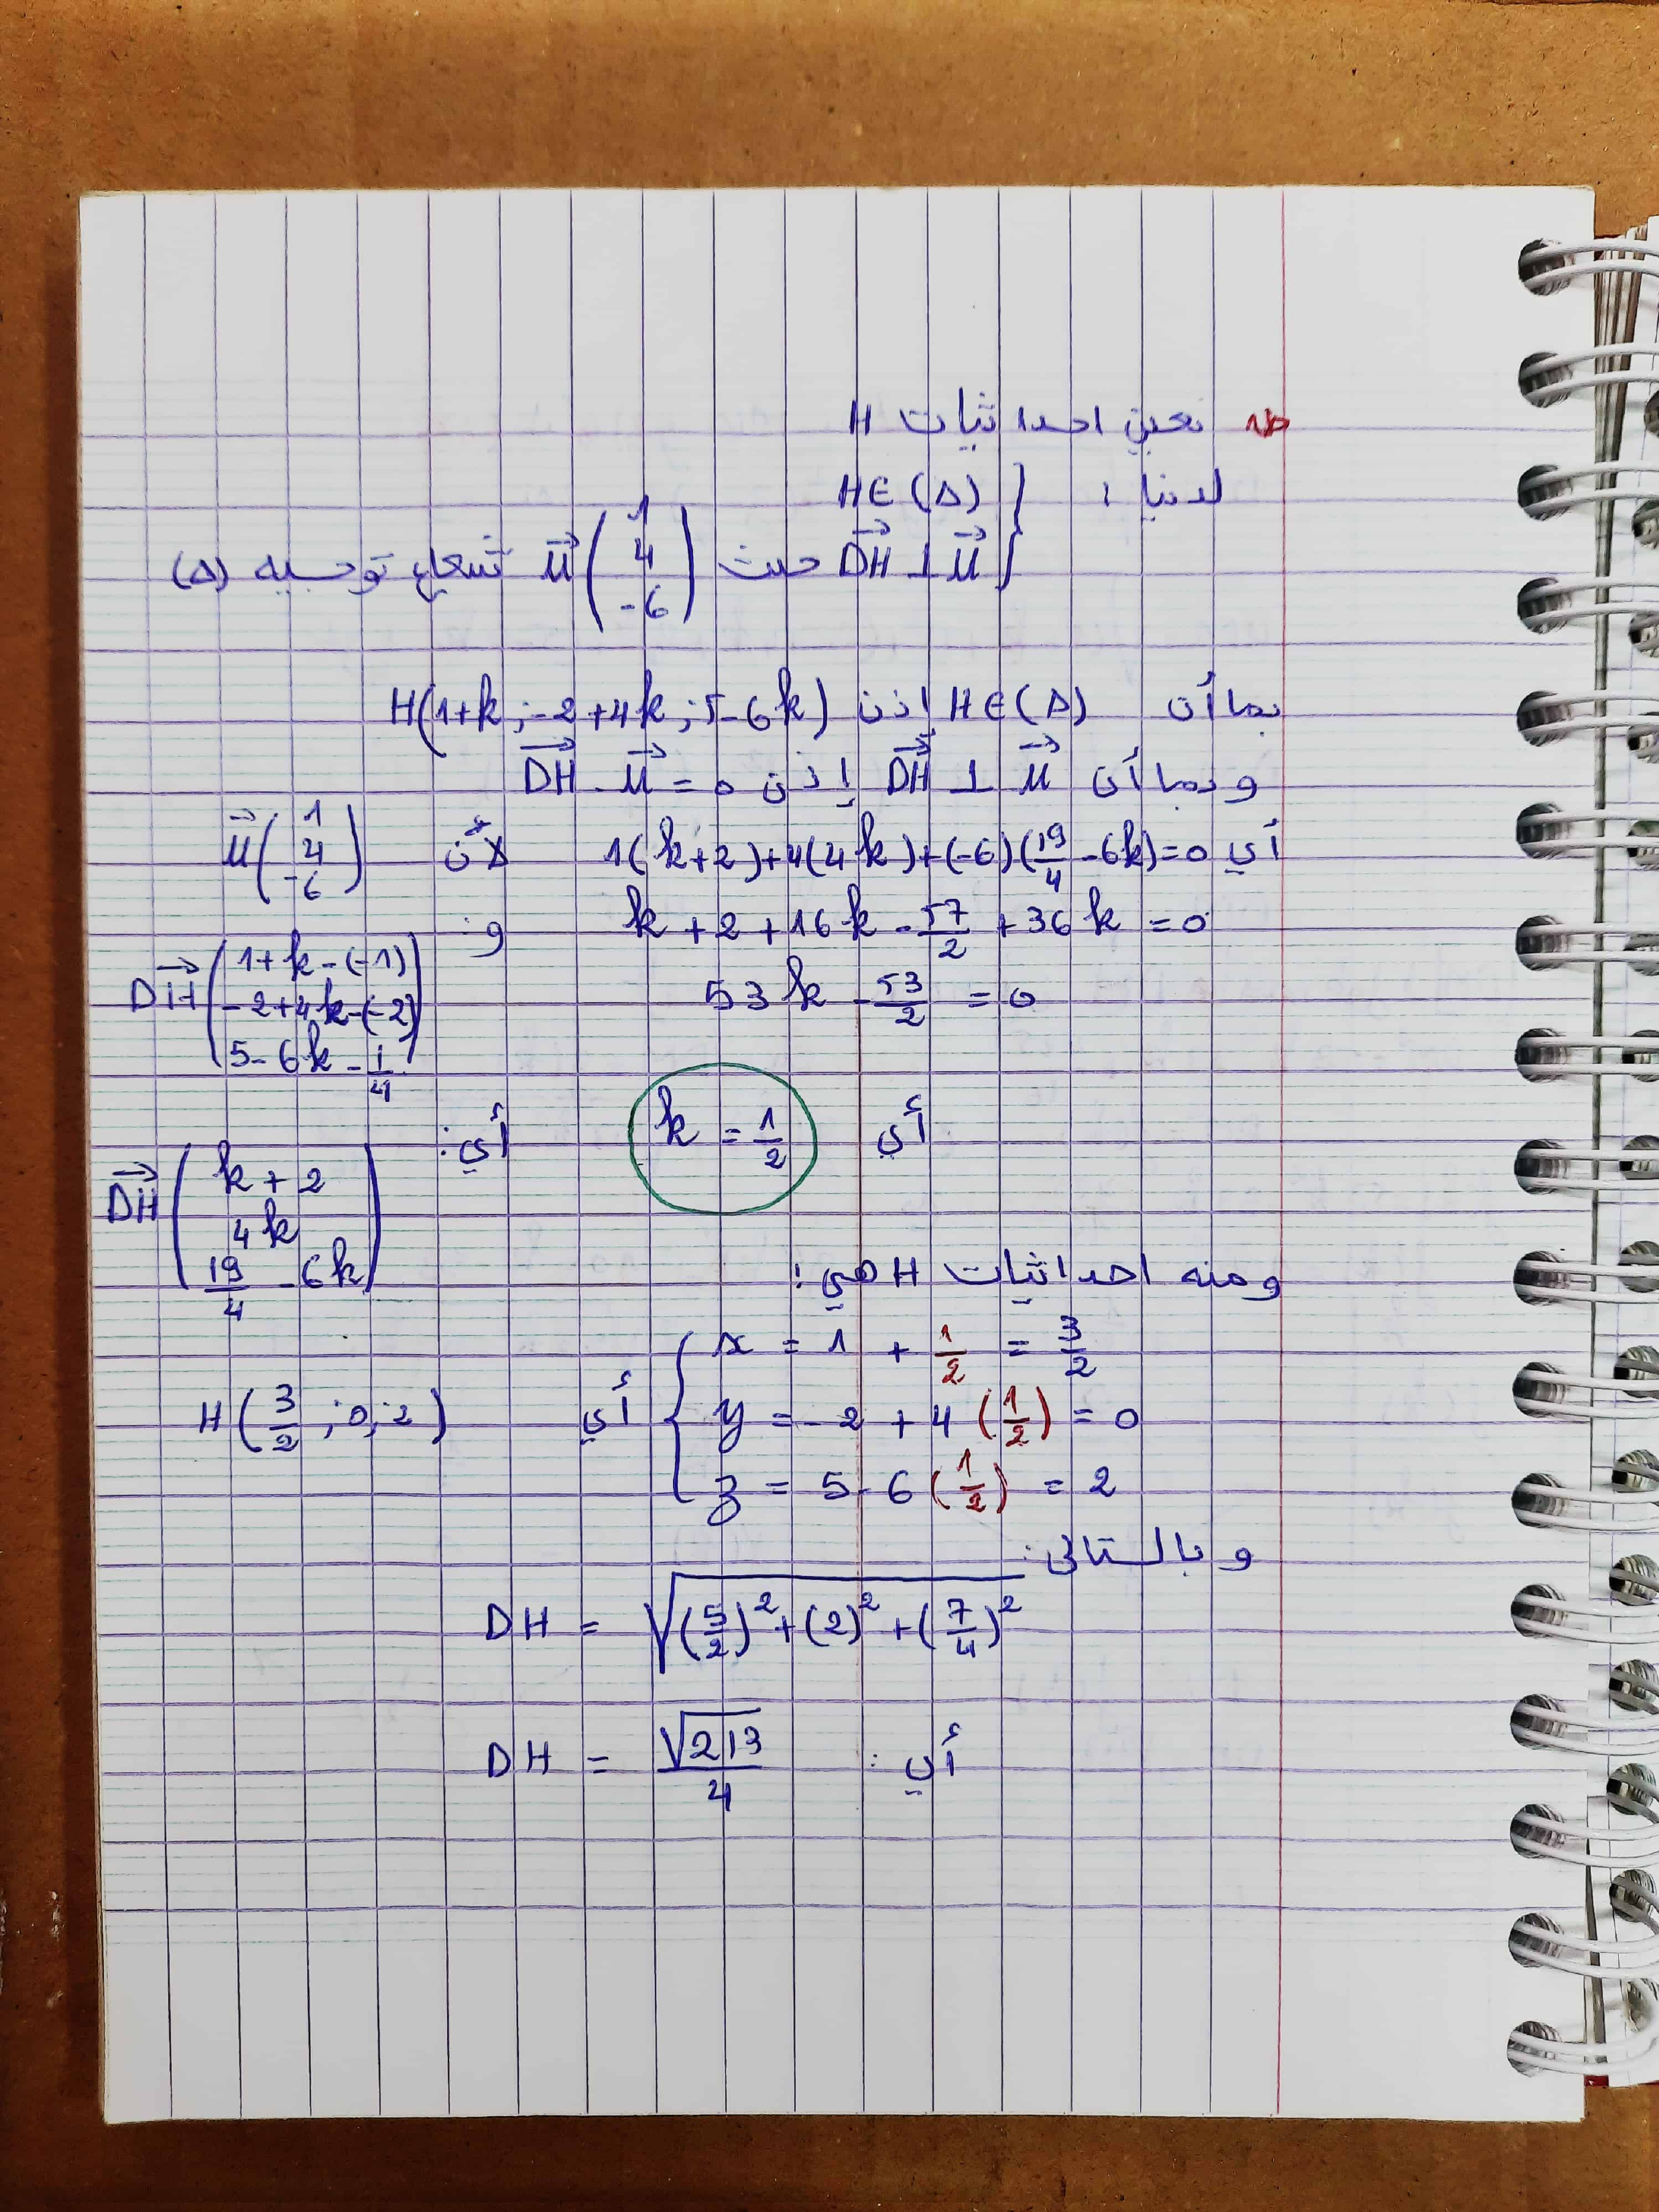 ط1 نعين احداثيات H
لدينا : { H∈(Δ)
DH⃗ ⊥ u⃗ حيث u⃗(1 4 -6) شعاع توجيه (Δ)
بما أن H∈(Δ) إذن H(1+k ; -2+4k ; 5-6k)
و بما أن DH⃗ ⊥ u⃗ إذن DH⃗ . u⃗ = 0
أي 1(k+2)+4(4k)+(-6)(19/4 - 6k)=0 لأن u⃗(1 4 -6)
k + 2 + 16k - 57/2 + 36k = 0 و:
DH⃗(1+k-(-1) -2+4k-(-2) 5-6k-1/4)
53k - 53/2 = 0
أي k = 1/2 أي:
DH⃗(k+2 4k 19/4 - 6k)
ومنه احداثيات H هي:
{ x = 1 + 1/2 = 3/2
y = -2 + 4(1/2) = 0 أي H(3/2 ; 0 ; 2)
z = 5 - 6(1/2) = 2
و بالتالي:
DH = √((5/2)² + (2)² + (7/4)²)
أي : DH = √213/4